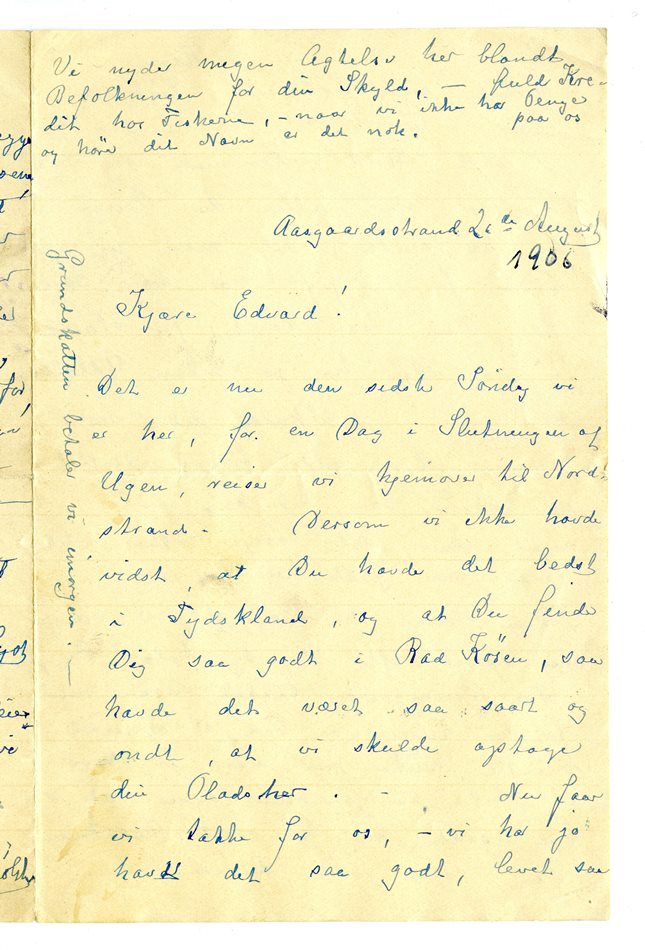 Vi nyder megen Agtelse her blandt
Befolkningen for din Skyld, — fuld Kre-
dit hos Fiskerne, – naar vi ikke har Penge
paa os
og hører dit Navn er det nok.
Aasgaardsstrand 26de August
1906
Kjære Edvard!
Det er nu den sidste Søndag vi
er her, for en Dag i Slutningen af
Ugen, reiser vi hjemover til Nord-
strand. Dersom vi ikke havde
vidst, at Du havde det bedst
i Tydskland, og at Du finder
Dig saa godt i Bad Kösen, saa
havde det været saa saart og
ondt, at vi skulde optage
din Plads her. – Nu faar
vi takke for os, – vi har jo
havt det saa godt, levet saa
Grundskatten betaler vi imorgen. —